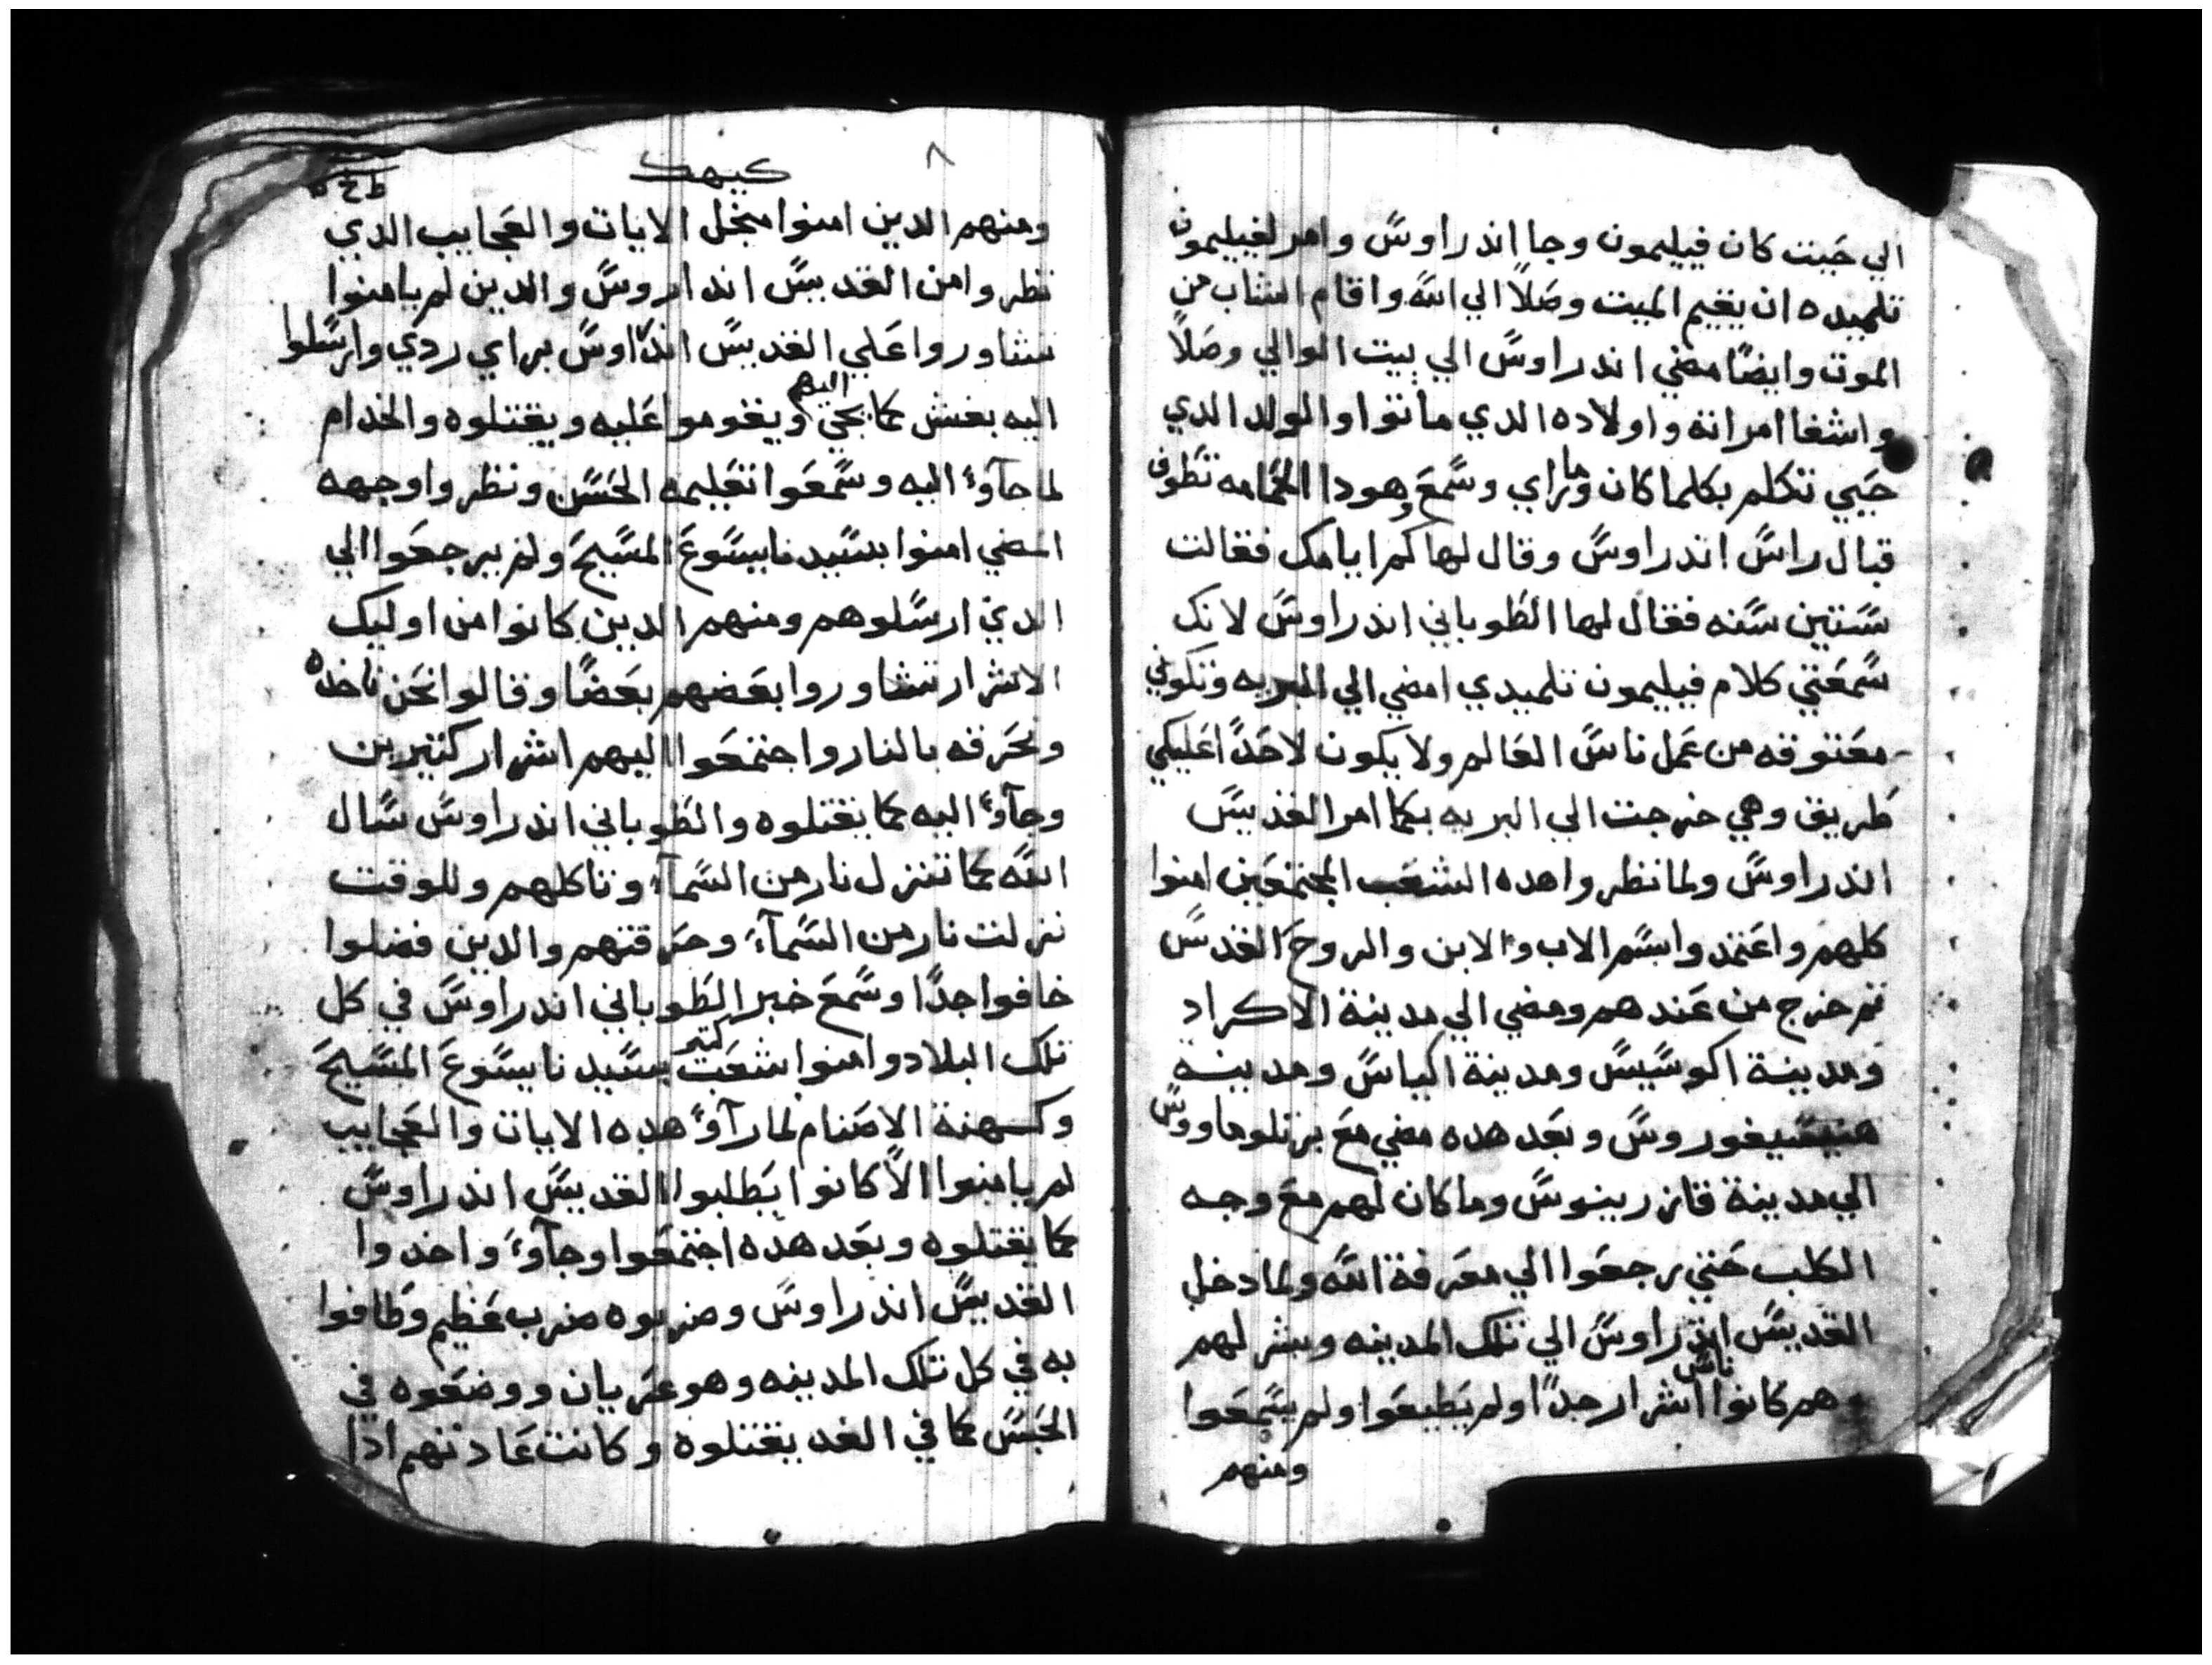 الي حيت كان فيليمون وجا اندراوس وامر لفيليمون
تلميده ان يقيم الميت وصلا الي الله واقام الشاب من
الموت وايضا مضي اندراوس الي بيت الوالي وصلا
واشفا امراته واولاده الدي ماتوا والولد الدي
حيي تتكلم بكلما كان وما راي وسمع وهودا الحمامه تطوف
قبال راس اندراوس وقال لها كم ايامك فقالت
ستين سنه فقال لها الطوباني اندراوس لانك
سمعتي كلام فيليمون تلميدي امضي الي البريه وتكوني
معتوقه من عمل ناس العالم ولا يكون لاحدا عليكي
طريق وهي خرجت الي البريه بكما امر القديس
اندراوس ولما نظروا هده الشعب المجتمعين امنوا
كلهم واعتمدوا بسم الاب والابن والروح القدس
تم خرج من عندهم ومضي الي مدينة الاكراد
ومدينة اكوسيس ومدينة اكياس ومدينه
وبعد هده مضي مع برتلوماووس
الي مدينة قازرينوس وما كان لهم مع وجه
الكلب حتي رجعوا الي معرفة الله ولما دخل
القديس اندراوس الي تلك المدينه وبشر لهم
وهم كانوا ناس اشرار جدا ولم يطيعوا ولم يسمعوا
ومنهم
٨
كيهك
ومنهم الدين امنوا منجل الايات والعجايب الدي
نظروا من القديس اندراوس والدين لم يامنوا
تشاوروا علي القديس اندراوس براي ردي وارسلوا
اليه بغش كما يجي اليهم ويقوموا عليه ويقتلوه والخدام
لما جآوا اليه وسمعوا تعليمه الحسن ونظروا وجهه
المضي امنوا بسيدنا يسوع المسيح ولم يرجعوا الي
الدي ارسلوهم ومنهم الدين كانوا من اوليك
الاشرار تشاوروا بعضهم بعضا وقالوا نحن ناخده
ونحرقه بالنار واجتمعوا اليهم اشرار كتيرين
وجآوا اليه كما يقتلوه والطوباني اندراوس سال
الله كما تنزل نار من السمآء وتاكلهم وللوقت
نزلت نار من السمآء وحرقتهم والدين فضلوا
خافوا جدا وسمع خبر الطوباني اندراوس في كل
تلك البلاد وامنوا شعب كتير بسيدنا يسوع المسيح
وكهنة الاصنام لما رآوا هده الايات والعجايب
لم يامنوا الا كانوا يطلبوا القديس اندراوس
كما يقتلوه وبعد هده اجتمعوا وجآوا واخدوا
القديس اندراوس وضربوه ضرب عظيم وطافوا
به في كل تلك المدينه وهو عريان ووضعوه في
الحبس كما في الغد يقتلوه وكانت عادتهم اذا